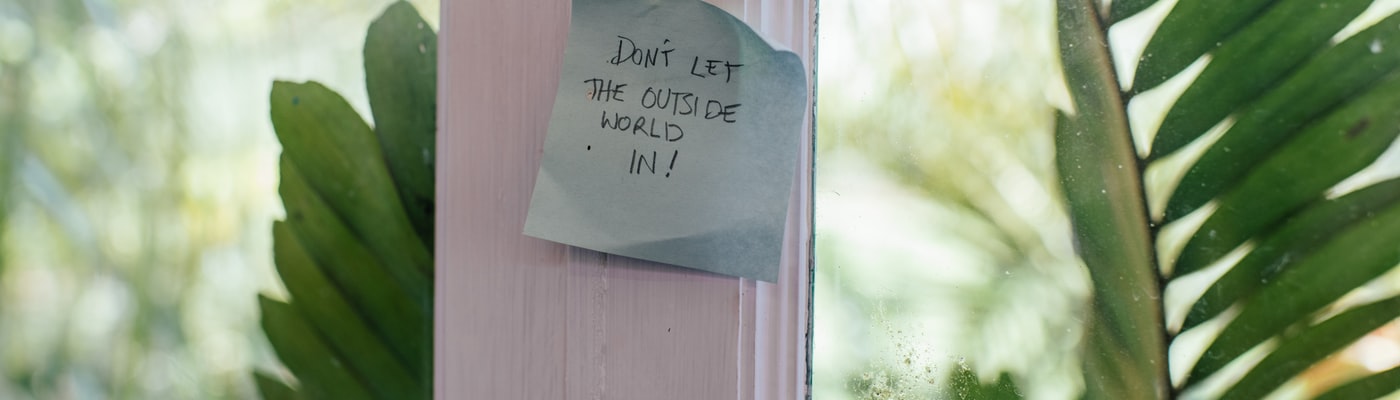 DON'T LET
THE OUTSIDE
WORLD
IN!